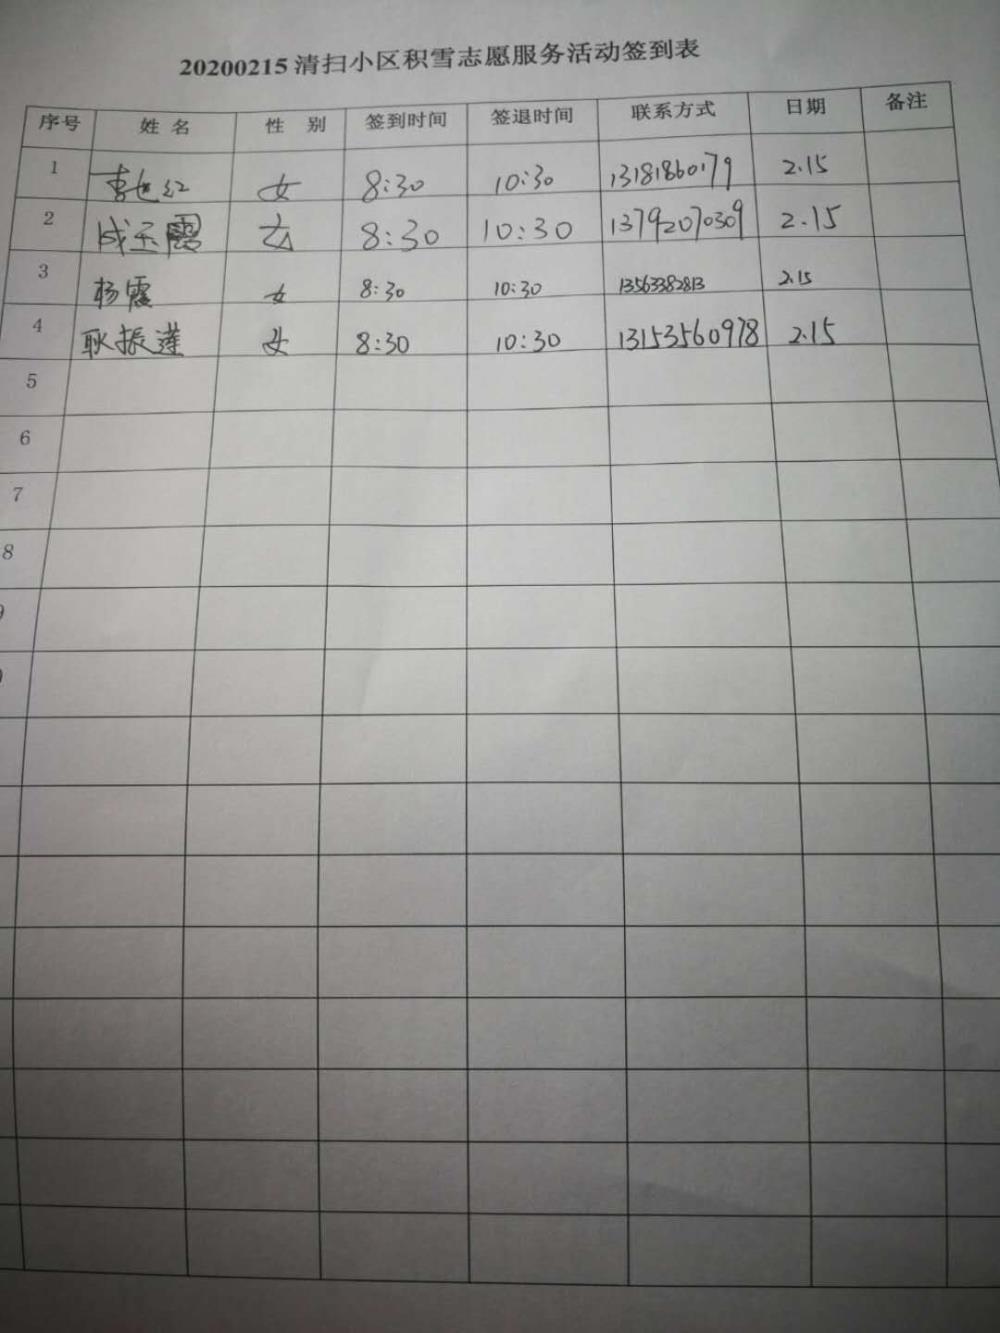 20200215清扫小区积雪志愿服务活动签到表
序号 姓 名 性 别 签到时间 签退时间 联系方式 日期 备注
1 李 红 女 8:30 10:30 13181860179 2.15
2 成玉霞 女 8:30 10:30 13792070309 2.15
3 杨霞 女 8:30 10:30 13563382813 2.15
4 耿振莲 女 8:30 10:30 13153560978 2.15
5
6
7
8